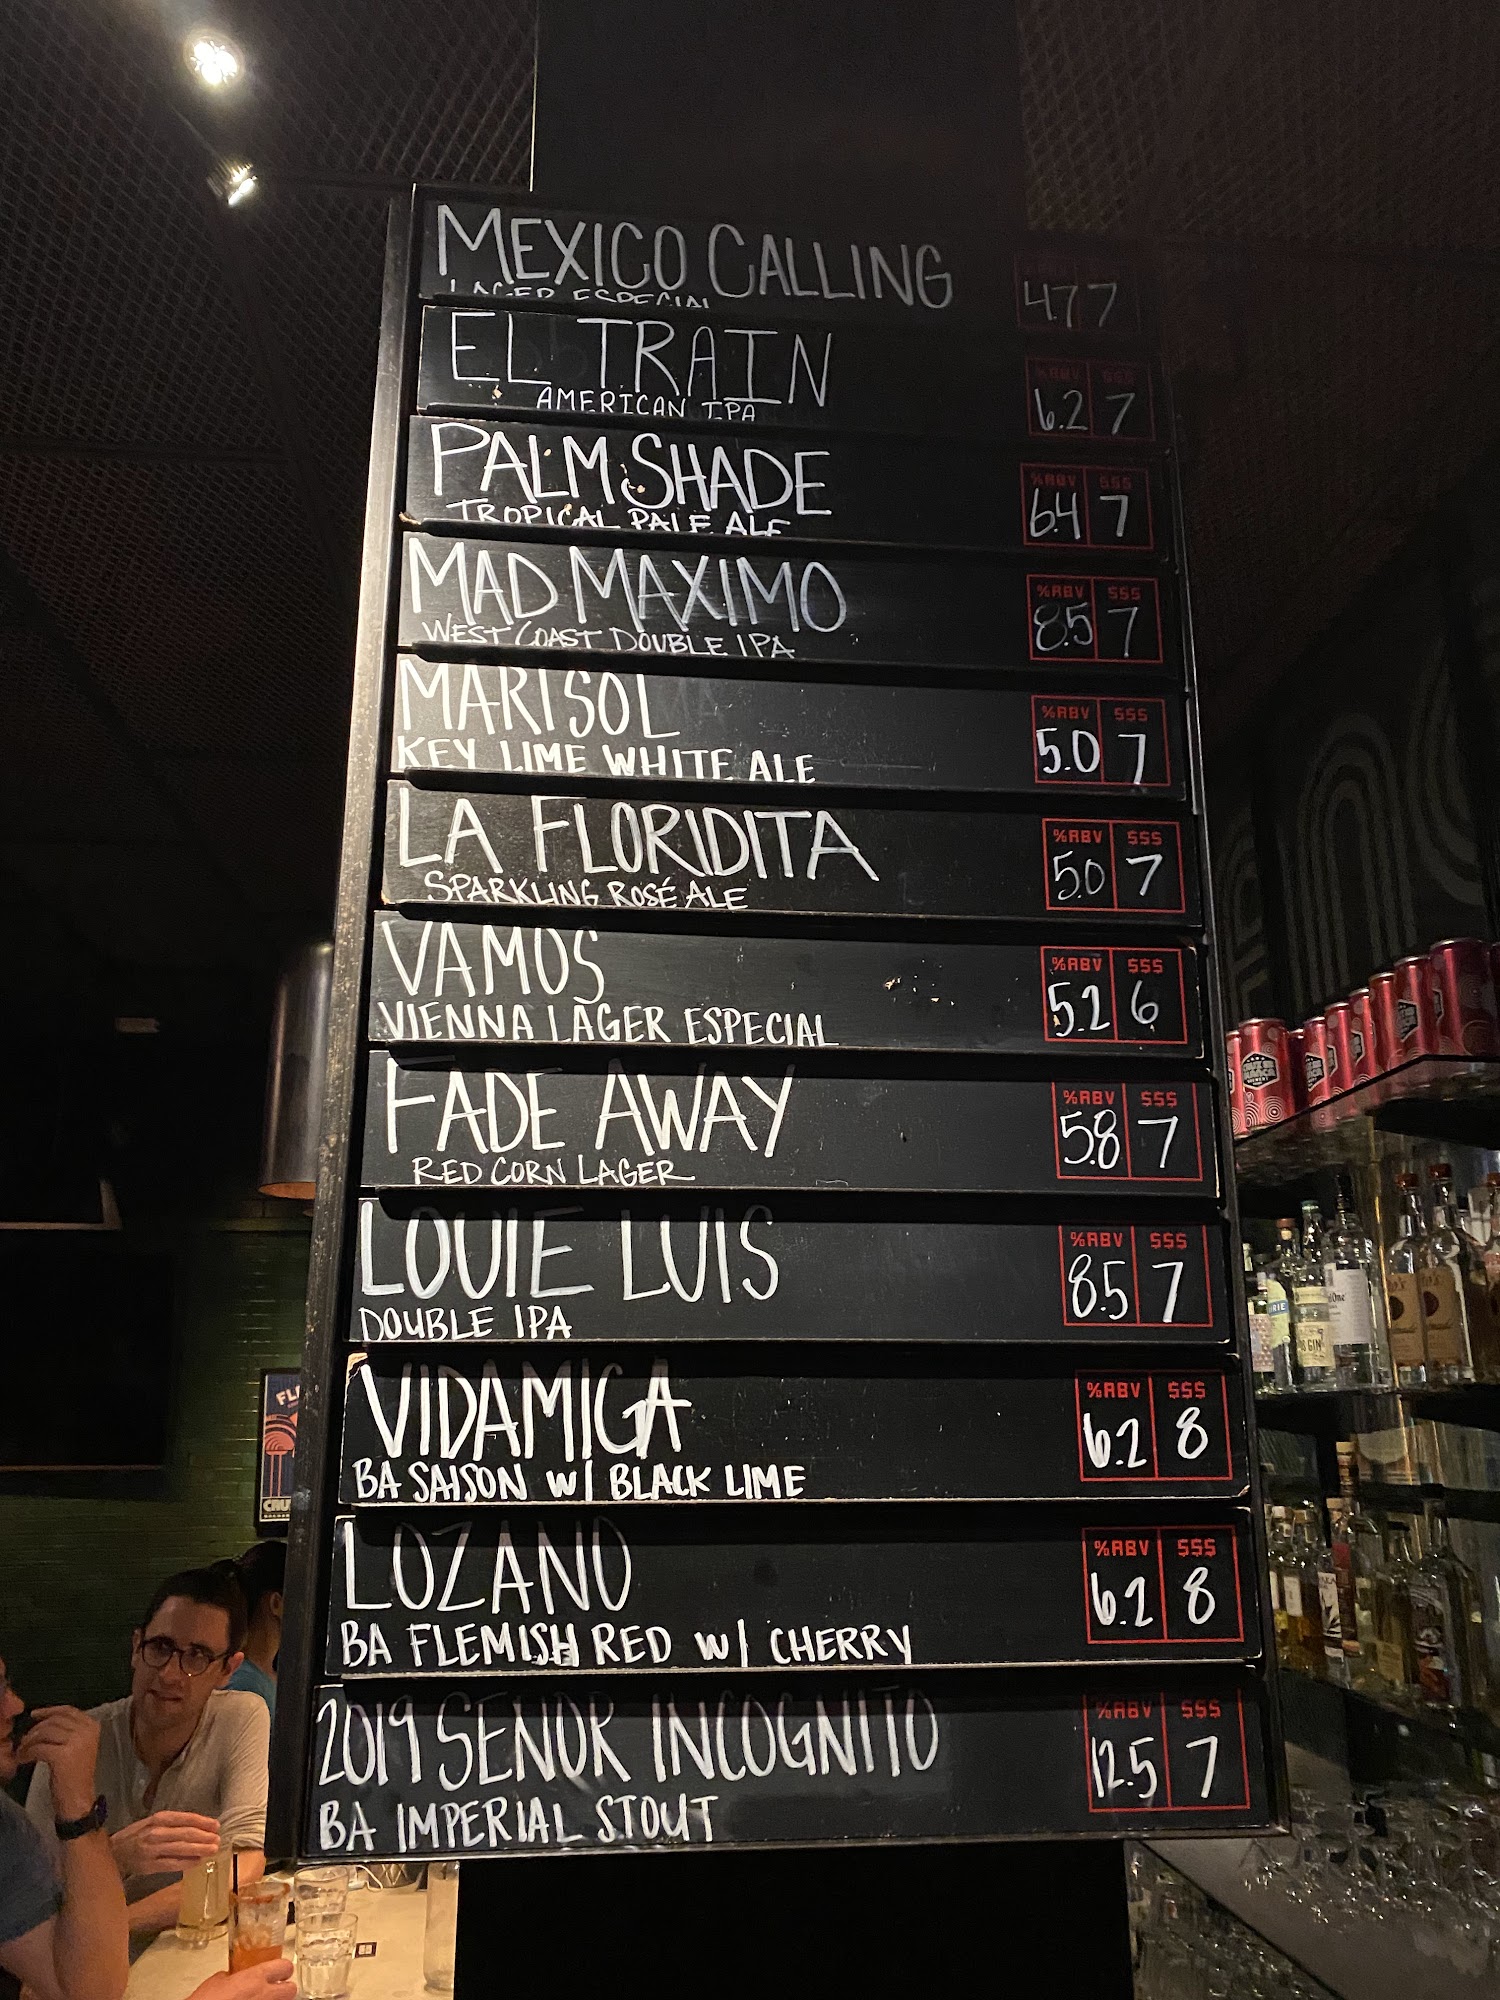 MEXICO CALLING
LAGER ESPECIAL
4.7 7
EL TRAIN
AMERICAN IPA
%ABV $$$
6.2 7
PALM SHADE
TROPICAL PALE ALE
%ABV $$$
6.4 7
MAD MAXIMO
WEST COAST DOUBLE IPA
%ABV $$$
8.5 7
MARISOL
KEY LIME WHITE ALE
%ABV $$$
5.0 7
LA FLORIDITA
SPARKLING ROSÉ ALE
%ABV $$$
5.0 7
VAMOS
VIENNA LAGER ESPECIAL
%ABV $$$
5.2 6
FADE AWAY
RED CORN LAGER
%ABV $$$
5.8 7
LOUIE LUIS
DOUBLE IPA
%ABV $$$
8.5 7
VIDAMIGA
BA SAISON W/ BLACK LIME
%ABV $$$
6.2 8
LOZANO
BA FLEMISH RED W/ CHERRY
%ABV $$$
6.2 8
2019 SENOR INCOGNITO
BA IMPERIAL STOUT
%ABV $$$
12.5 7
GIN